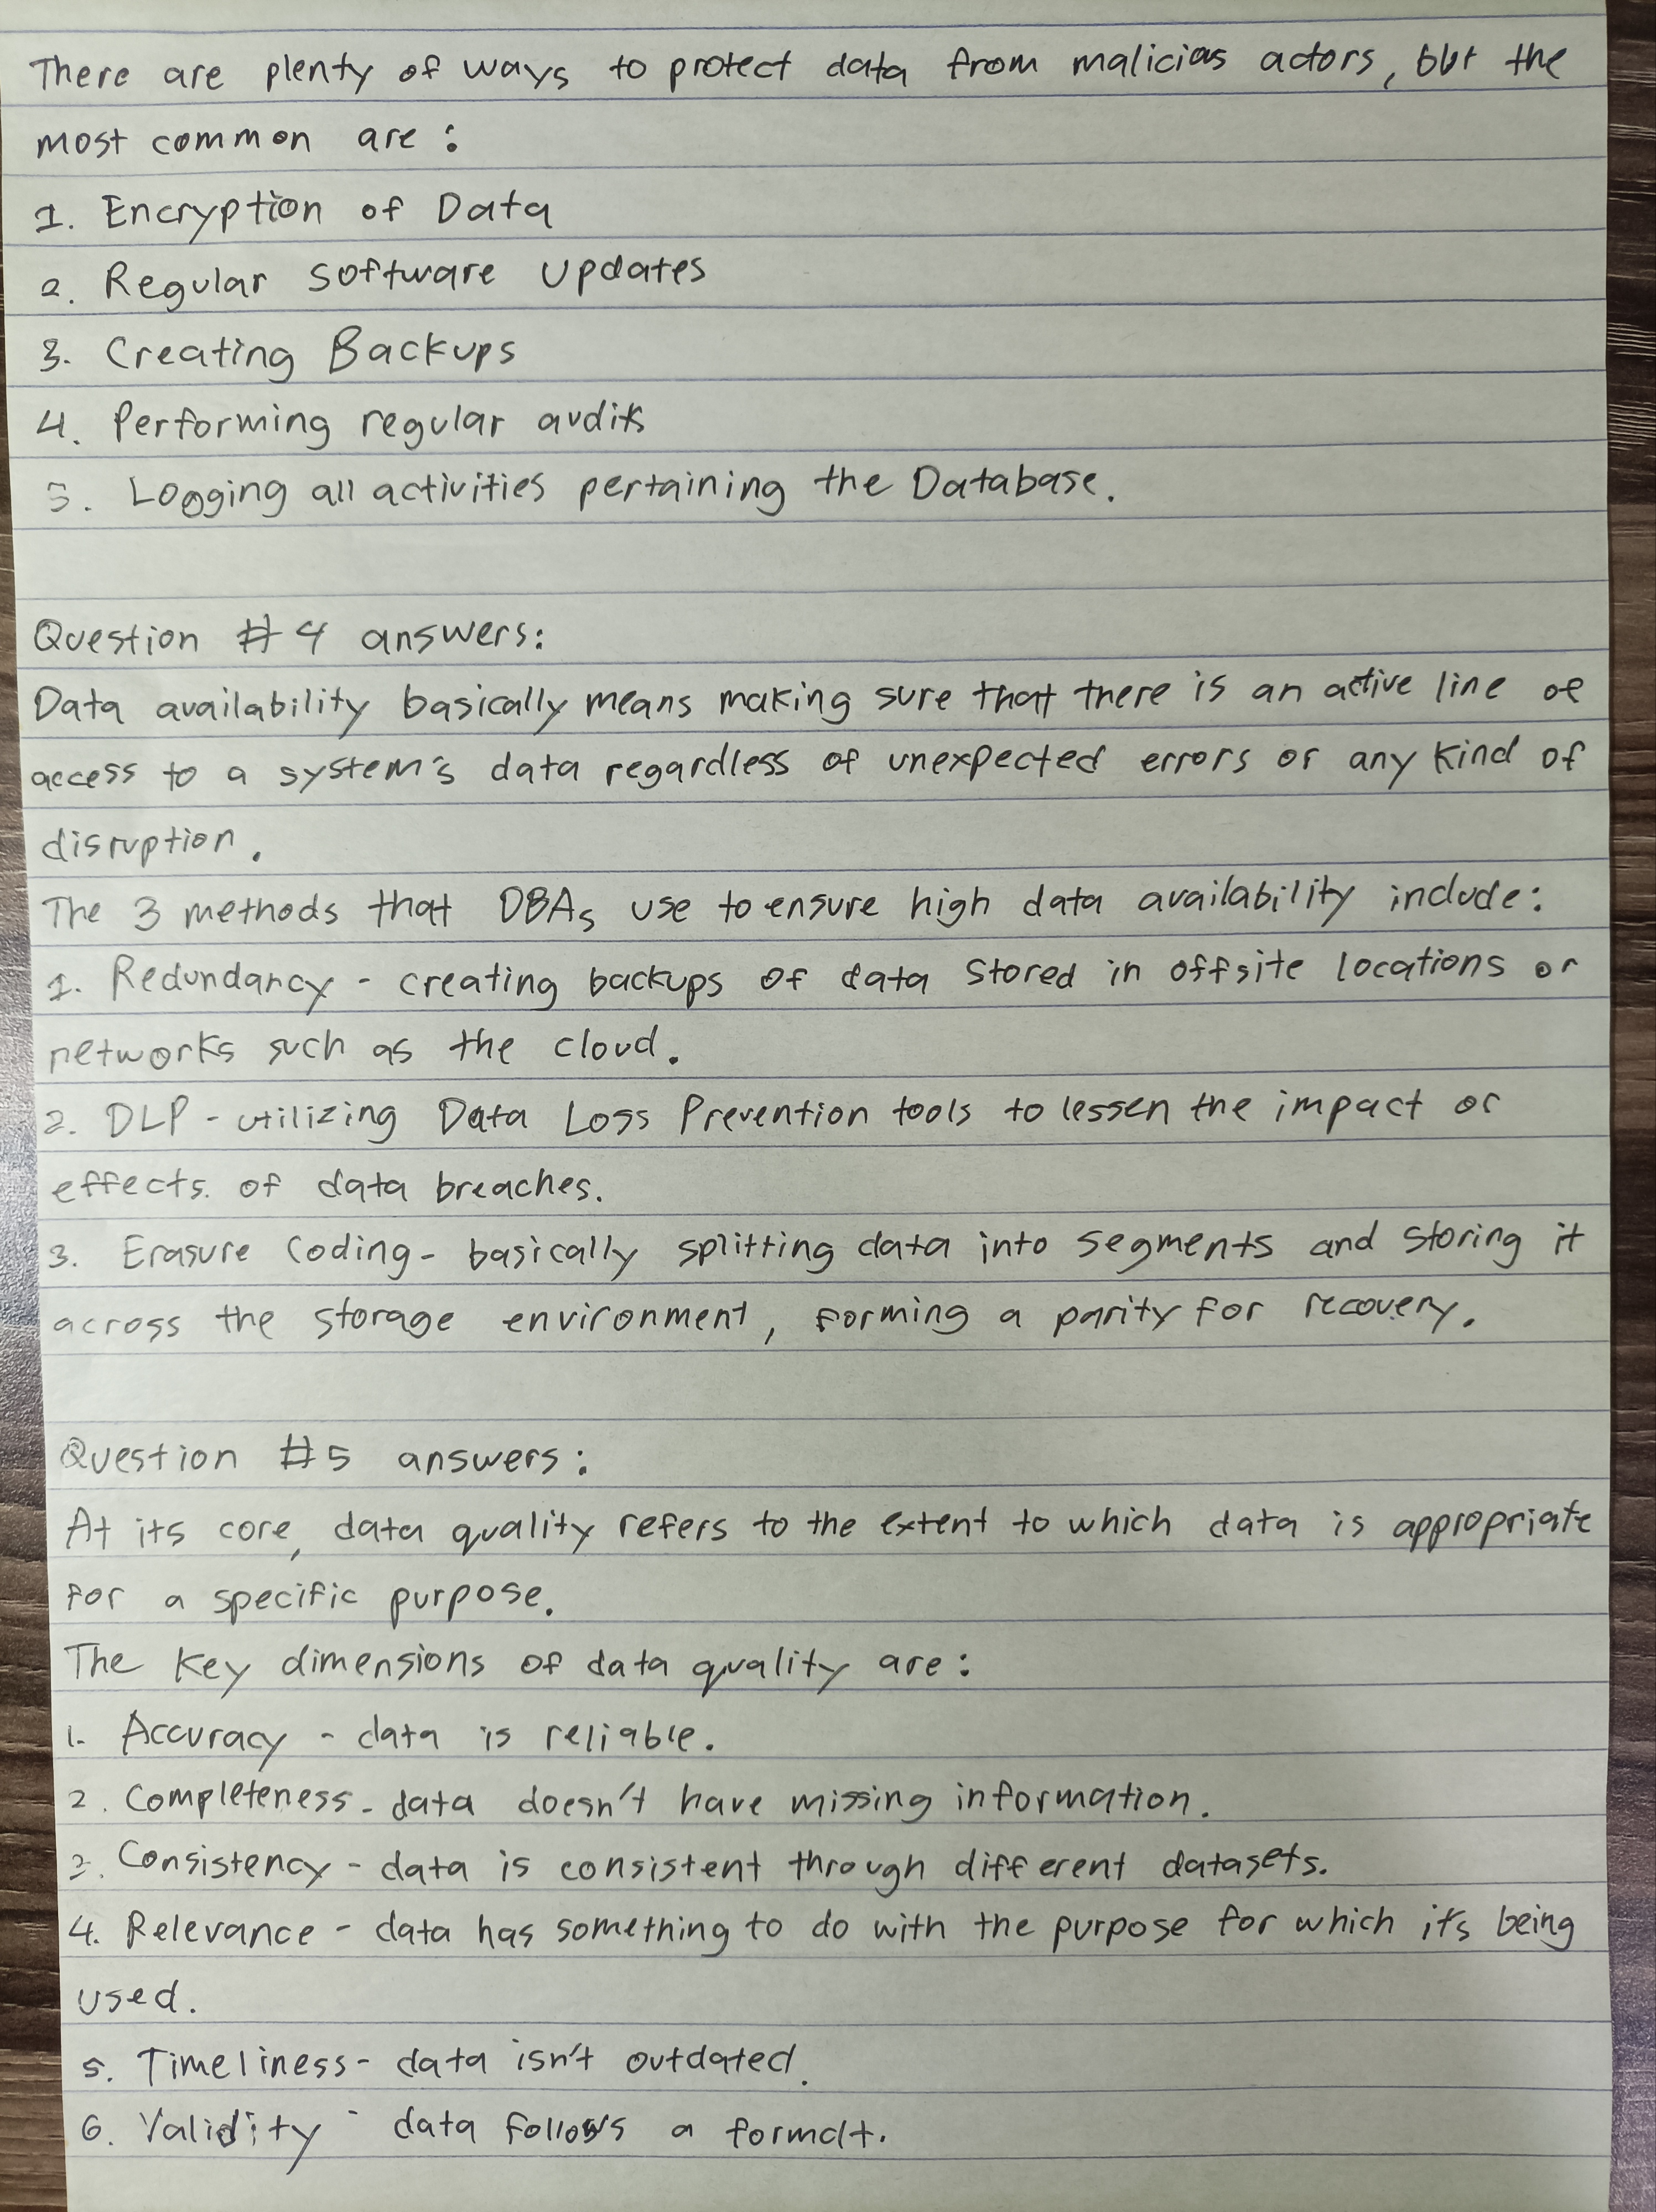 There are plenty of ways to protect data from malicias actors, but the
most common are :
1. Encryption of Data
2. Regular software updates
3. Creating Backups
4. Performing regular audits
5. Logging all activities pertaining the Database.
Question #4 answers:
Data availability basically means making sure that there is an active line of
access to a system's data regardless of unexpected errors or any kind of
disruption.
The 3 methods that DBAs use to ensure high data availability include:
1. Redundancy - creating backups of data stored in offsite locations or
networks such as the cloud.
2. DLP - utilizing Data Loss Prevention tools to lessen the impact or
effects. of data breaches.
3. Erasure Coding - basically splitting data into segments and storing it
across the storage environment, forming a parity for recovery.
Question #5 answers:
At its core, data quality refers to the extent to which data is appropriate
for a specific purpose.
The key dimensions of data quality are:
1. Accuracy - data is reliable.
2. Completeness - data doesn't have missing information.
3. Consistency - data is consistent through different datasets.
4. Relevance - data has something to do with the purpose for which it's being
used.
5. Timeliness - data isn't outdated.
6. Validity - data follows a format.